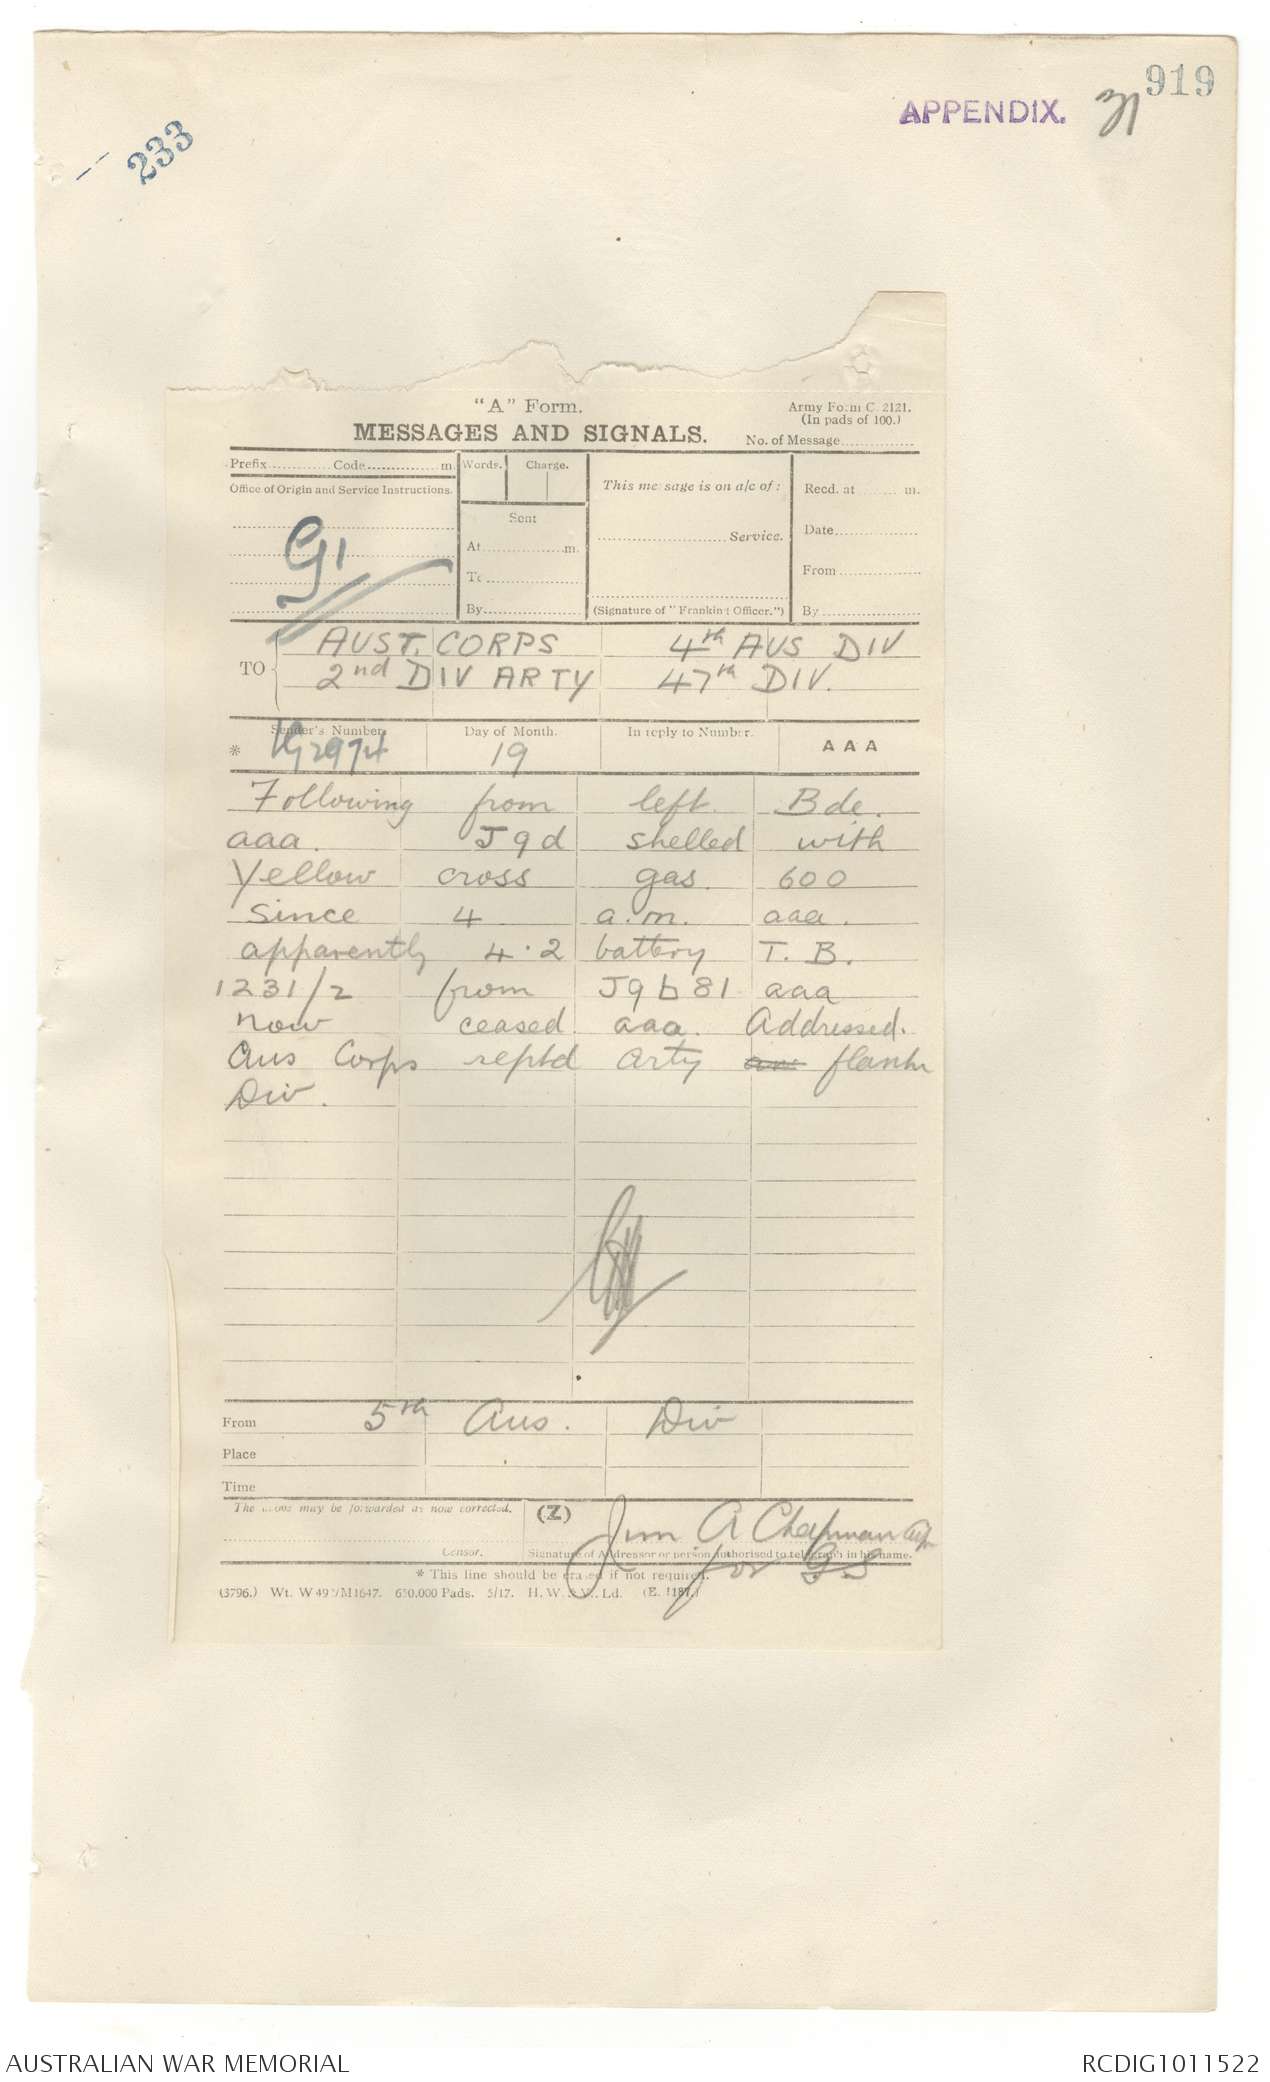 919
APPENDIX.
233
"A" Form.
Army Form C. 2121.
(In pads of 100.)
MESSAGES AND SIGNALS.
No. of Message
Prefix Code m.
Words. Charge.
This message is on a/c of:
Recd. at m.
Office of Origin and Service Instructions.
Sent
Service.
Date
G1
At m.
From
To
By
(Signature of "Franking Officer.")
By
TO
AUST. CORPS 4th AUS DIV
2nd DIV ARTY 47th DIV.
Sender's Number. Day of Month. In reply to Number. AAA
* 19
Following from left Bde.
aaa. J9d shelled with
Yellow cross gas. 600
since 4 a.m. aaa.
apparently 4.2 battery T.B.
1231/2 from J9b81 aaa
now ceased aaa. Addressed.
Aus Corps reptd arty flank
Div.
From 5th Aus. Div
Place
Time
The above may be forwarded as now corrected. (Z)
Jim A Chapman
Censor. Signature of Addressor or person authorised to telegraph in his name.
for GS
* This line should be erased if not required.
(3796.) Wt. W 492/M1647. 650,000 Pads. 5/17. H. W. & V., Ld. (E. 1187.)
AUSTRALIAN WAR MEMORIAL
RCDIG1011522